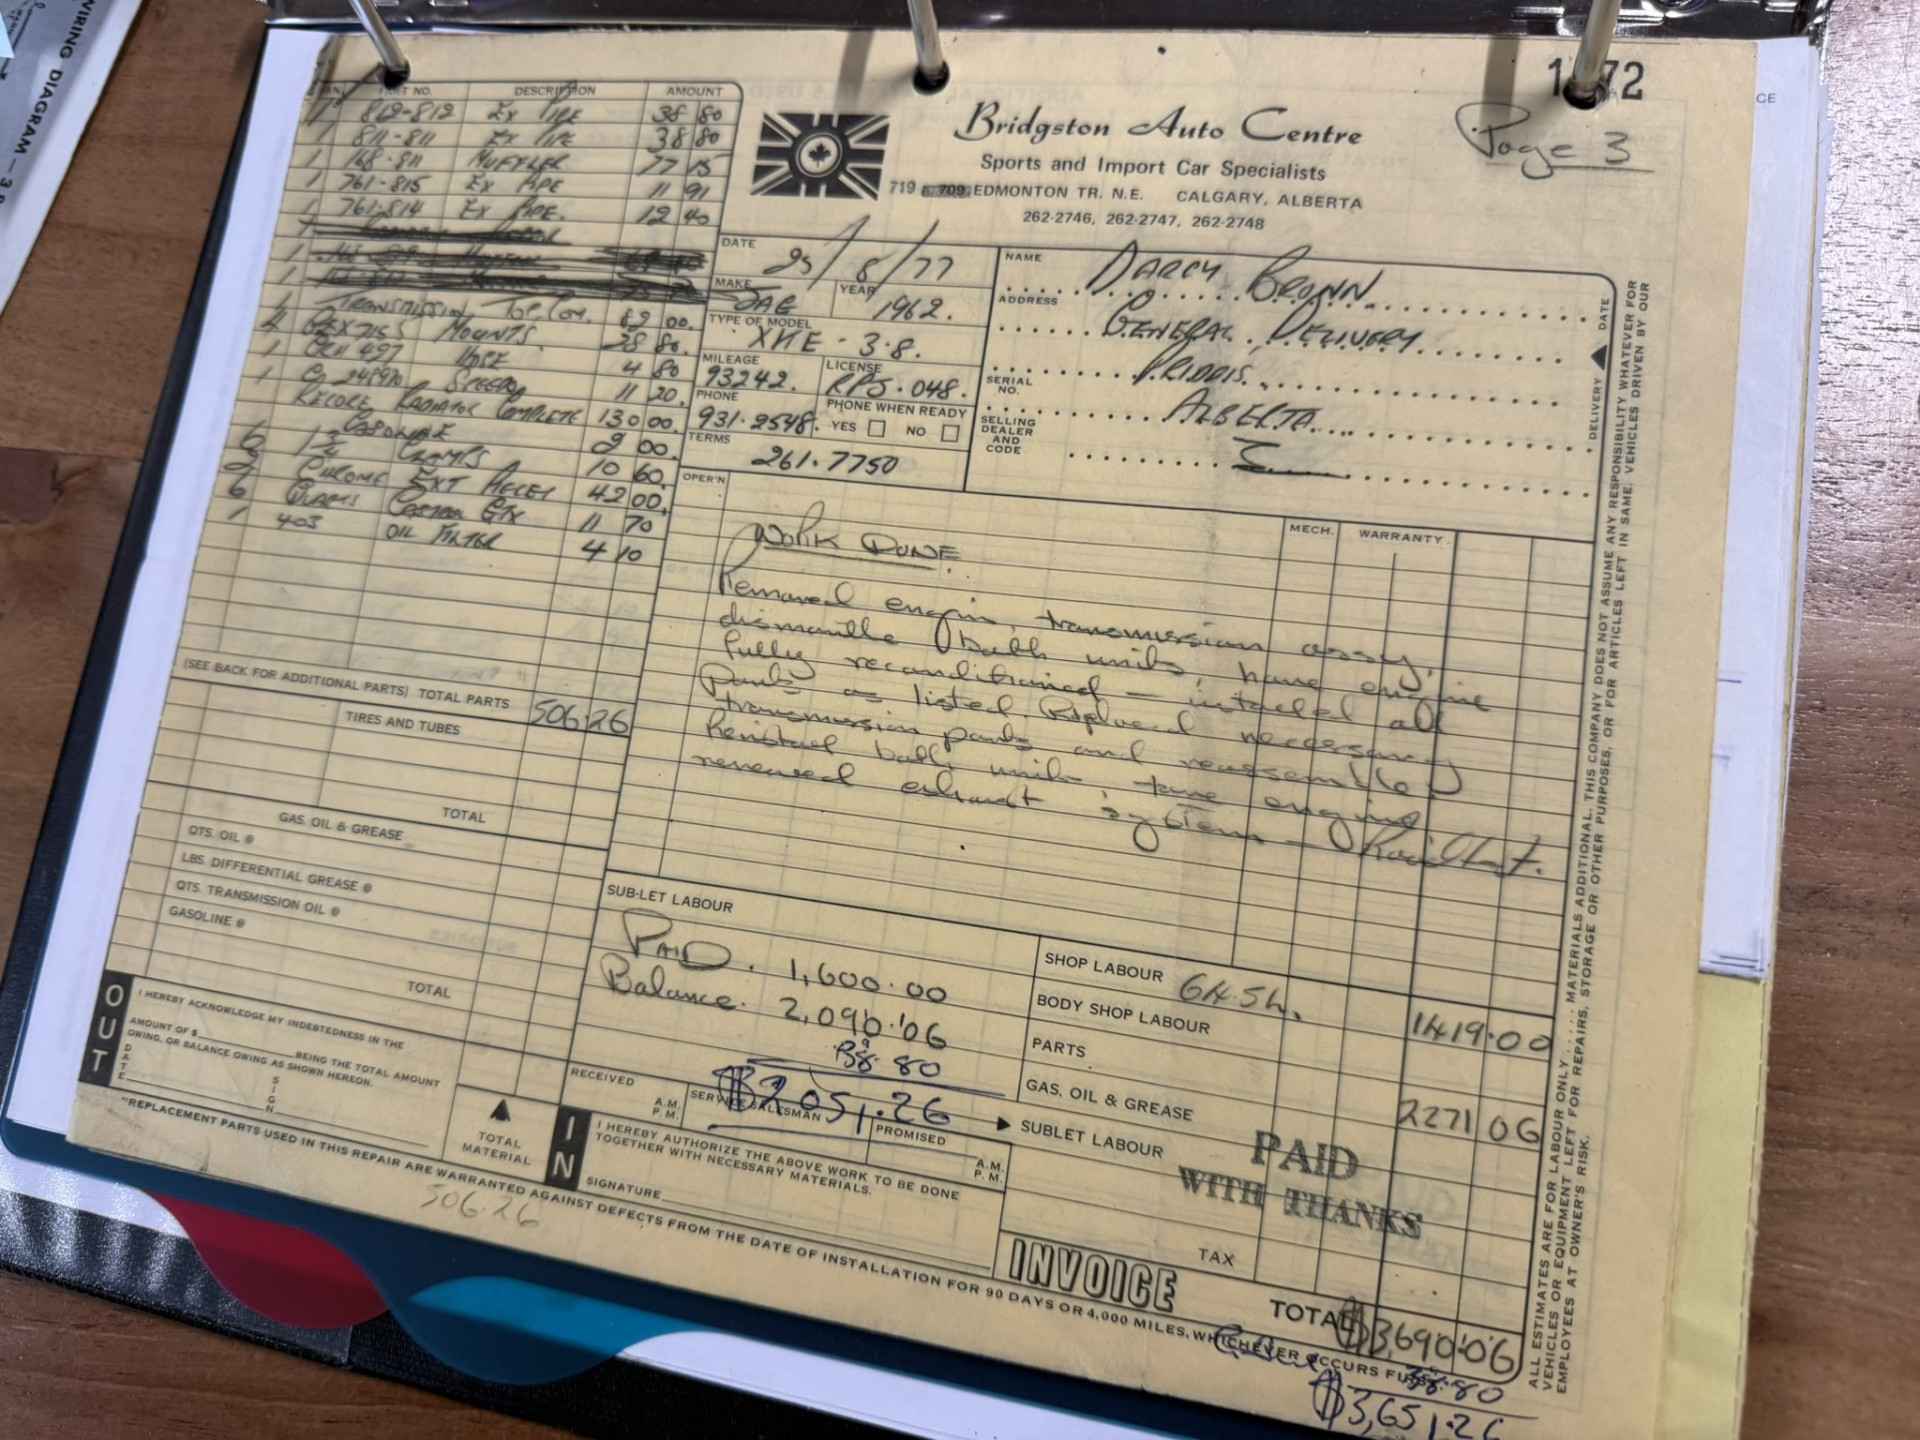 WIRING DIAGRAM — 3.8
1 72
Page 3
Bridgston Auto Centre
Sports and Import Car Specialists
719 709 EDMONTON TR. N.E. CALGARY, ALBERTA
262-2746, 262-2747, 262-2748
PART NO. DESCRIPTION AMOUNT
1 812-812 Ex PIPE 38 80
1 811-811 Ex PIPE 38 80
1 168-811 MUFFLER 77 15
1 761-815 Ex PIPE 11 91
1 761-814 Ex PIPE. 12 40
1
1
TRANSMISSION TOP 62 00.
MOUNTS. 38 80.
1 HOSE 4 80
1 SPEEDO 11 20.
RECORE RADIATOR COMPLETE 130 00.
9 00.
6 1 3/4 CLAMPS 10 60.
2 CHROME EXT 42 00,
6 QUARTS CASTROL GTX 11 70
1 403 OIL FILTER 4 10
(SEE BACK FOR ADDITIONAL PARTS) TOTAL PARTS 506.26
TIRES AND TUBES
TOTAL
GAS, OIL & GREASE
QTS. OIL @
LBS. DIFFERENTIAL GREASE @
QTS. TRANSMISSION OIL @
GASOLINE @
TOTAL
DATE 25/8/77
MAKE JAG YEAR 1962.
TYPE OF MODEL XKE - 3.8.
MILEAGE 93242. LICENSE RPS.048.
PHONE 931.2548. PHONE WHEN READY YES NO
TERMS 261.7750
NAME DARCY BROWN
ADDRESS GENERAL DELIVERY
PRIDDIS.
SERIAL NO. ALBERTA
SELLING DEALER AND CODE
DELIVERY DATE
OPER'N MECH. WARRANTY
WORK DONE
Removed engin, transmission assy,
dismantle both units, have engine
fully reconditioned - installed all
Parts as listed. Replaced neccessary
transmission parts and reassemble.
Reinstall both units tune engine,
renewed exhaust system
SUB-LET LABOUR
PAID. 1,600.00
Balance. 2,090.06
38.80
$2051.26
SHOP LABOUR 64.5h. 1419.00
BODY SHOP LABOUR
PARTS 2271 06
GAS, OIL & GREASE
SUBLET LABOUR
PAID
WITH THANKS
TAX
INVOICE
TOTAL $3,690.06
38.80
$3,651.26
OUT
I HEREBY ACKNOWLEDGE MY INDEBTEDNESS IN THE
AMOUNT OF $ BEING THE TOTAL AMOUNT
OWING, OR BALANCE OWING AS SHOWN HEREON.
DATE SIGN
TOTAL MATERIAL
IN
RECEIVED A.M. P.M.
SERVICE SALESMAN
PROMISED A.M. P.M.
I HEREBY AUTHORIZE THE ABOVE WORK TO BE DONE
TOGETHER WITH NECESSARY MATERIALS.
SIGNATURE
"REPLACEMENT PARTS USED IN THIS REPAIR ARE WARRANTED AGAINST DEFECTS FROM THE DATE OF INSTALLATION FOR 90 DAYS OR 4,000 MILES, WHICHEVER OCCURS
506.26
ALL ESTIMATES ARE FOR LABOUR ONLY..... MATERIALS ADDITIONAL. THIS COMPANY DOES NOT ASSUME ANY RESPONSIBILITY WHATEVER FOR
VEHICLES OR EQUIPMENT LEFT FOR REPAIRS, STORAGE OR OTHER PURPOSES, OR FOR ARTICLES LEFT IN SAME. VEHICLES DRIVEN BY OUR
EMPLOYEES AT OWNER'S RISK.